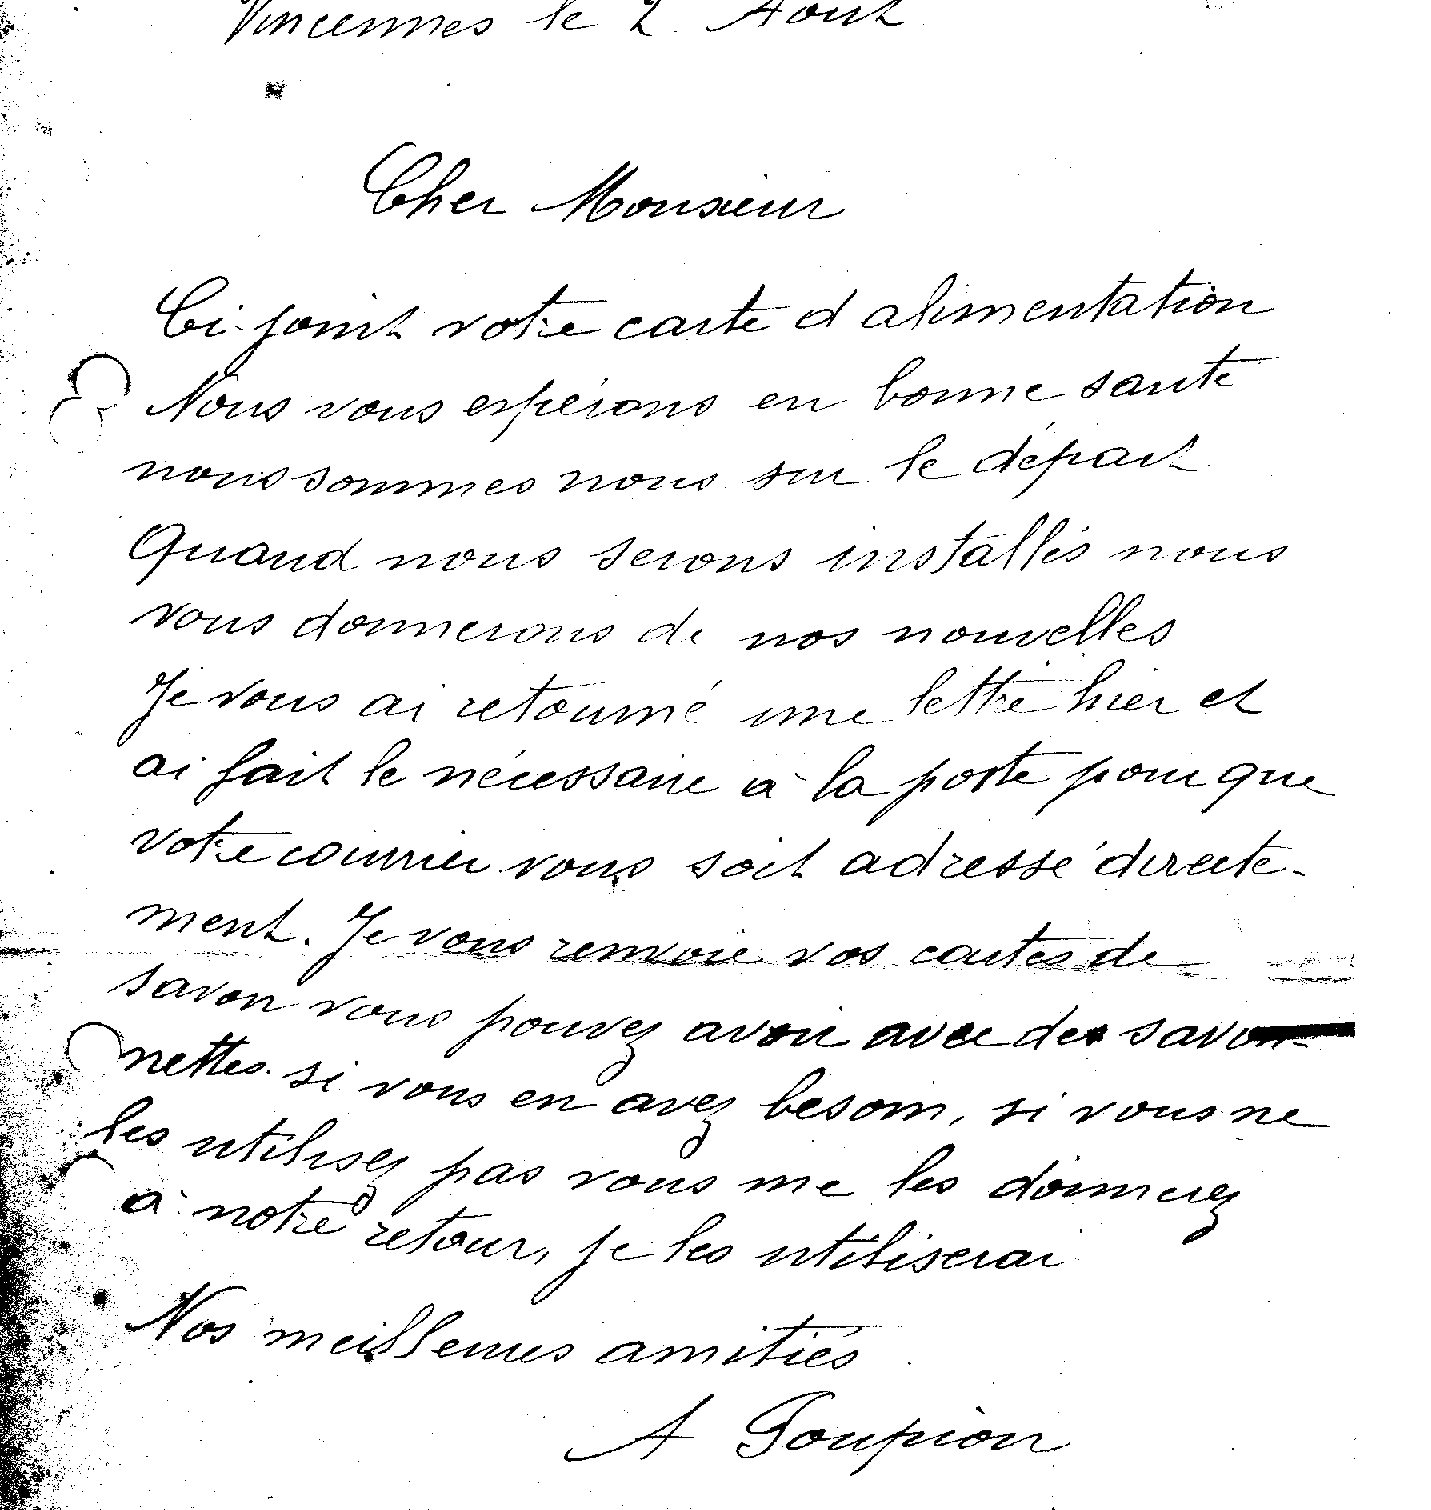 Vincennes le 2 Aout
Cher Monsieur
Ci-joint votre carte d alimentation
Nous vous espérons en bonne santé
nous sommes nous sur le départ
Quand nous serons installés nous
vous donnerons de nos nouvelles
Je vous ai retourné une lettre hier et
ai fait le nécessaire à la poste pour que
votre courrier vous soit adressé directe-
ment. Je vous renvoie vos cartes de
savon vous pouvez avoir avec des savon-
nettes si vous en avez besoin, si vous ne
les utilisez pas vous me les donnerez
à notre retour, je les utiliserai
Nos meilleures amitiés
A Poupion